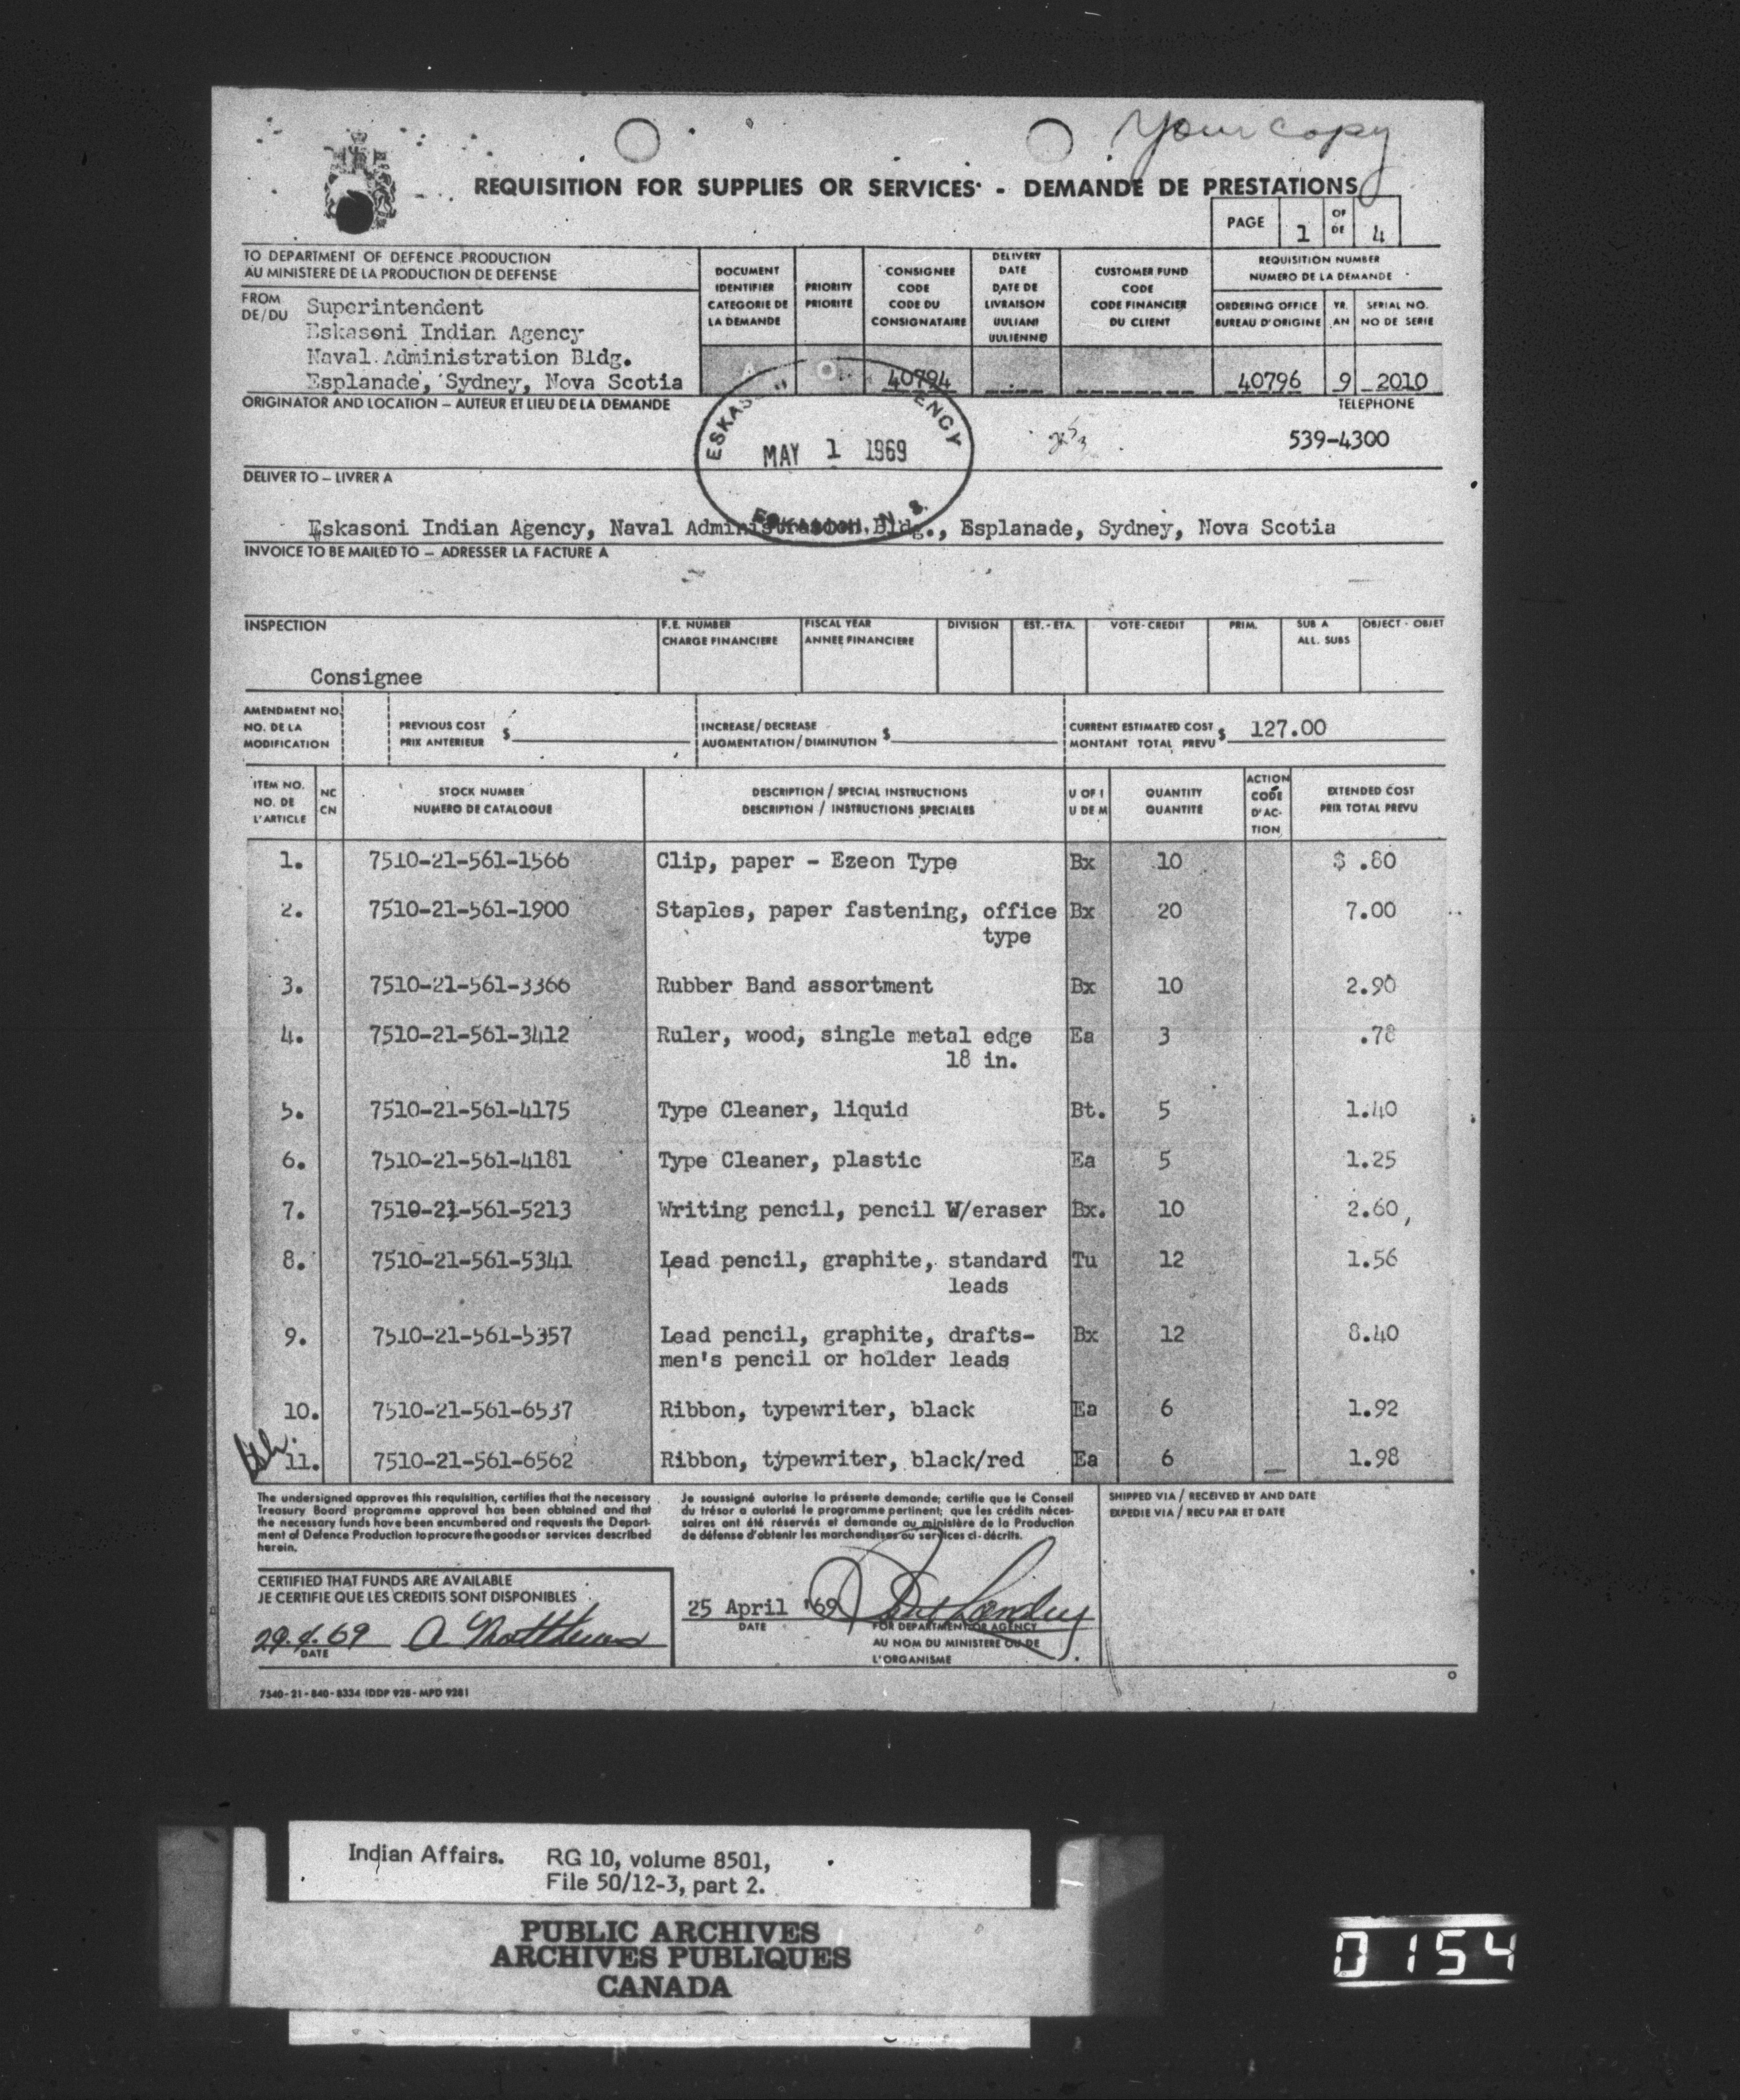 Your copy
REQUISITION FOR SUPPLIES OR SERVICES - DEMANDE DE PRESTATIONS
PAGE 1 OF DE 4
TO DEPARTMENT OF DEFENCE PRODUCTION
AU MINISTERE DE LA PRODUCTION DE DEFENSE
FROM DE/DU
Superintendent
Eskasoni Indian Agency
Naval Administration Bldg.
Esplanade, Sydney, Nova Scotia
DOCUMENT IDENTIFIER CATEGORIE DE LA DEMANDE
A
PRIORITY PRIORITE
O
CONSIGNEE CODE CODE DU CONSIGNATAIRE
40794
DELIVERY DATE DATE DE LIVRAISON (JULIAN) (JULIENNE)
CUSTOMER FUND CODE CODE FINANCIER DU CLIENT
REQUISITION NUMBER
NUMERO DE LA DEMANDE
ORDERING OFFICE BUREAU D'ORIGINE
YR. AN
SERIAL NO. NO DE SERIE
40796 9 2010
ORIGINATOR AND LOCATION – AUTEUR ET LIEU DE LA DEMANDE
TELEPHONE
539-4300
MAY 1 1969
ESKASONI, N. S.
DELIVER TO – LIVRER A
Eskasoni Indian Agency, Naval Administration Bldg., Esplanade, Sydney, Nova Scotia
INVOICE TO BE MAILED TO – ADRESSER LA FACTURE A
INSPECTION
Consignee
F.E. NUMBER CHARGE FINANCIERE
FISCAL YEAR ANNEE FINANCIERE
DIVISION
EST. - ETA.
VOTE - CREDIT
PRIM.
SUB A ALL. SUBS
OBJECT - OBJET
AMENDMENT NO. NO. DE LA MODIFICATION
PREVIOUS COST PRIX ANTERIEUR $
INCREASE / DECREASE AUGMENTATION / DIMINUTION $
CURRENT ESTIMATED COST MONTANT TOTAL PREVU $ 127.00
ITEM NO. NO. DE L'ARTICLE
NC CN
STOCK NUMBER NUMERO DE CATALOGUE
DESCRIPTION / SPECIAL INSTRUCTIONS DESCRIPTION / INSTRUCTIONS SPECIALES
U OF I U DE M
QUANTITY QUANTITE
ACTION CODE CODE D'ACTION
EXTENDED COST PRIX TOTAL PREVU
1. 7510-21-561-1566 Clip, paper - Ezeon Type Bx 10 $ .80
2. 7510-21-561-1900 Staples, paper fastening, office Bx 20 7.00
type
3. 7510-21-561-3366 Rubber Band assortment Bx 10 2.90
4. 7510-21-561-3412 Ruler, wood, single metal edge Ea 3 .78
18 in.
5. 7510-21-561-4175 Type Cleaner, liquid Bt. 5 1.40
6. 7510-21-561-4181 Type Cleaner, plastic Ea 5 1.25
7. 7510-21-561-5213 Writing pencil, pencil W/eraser Bx. 10 2.60
8. 7510-21-561-5341 Lead pencil, graphite, standard Tu 12 1.56
leads
9. 7510-21-561-5357 Lead pencil, graphite, drafts- Bx 12 8.40
men's pencil or holder leads
10. 7510-21-561-6537 Ribbon, typewriter, black Ea 6 1.92
11. 7510-21-561-6562 Ribbon, typewriter, black/red Ea 6 1.98
The undersigned approves this requisition, certifies that the necessary
Treasury Board programme approval has been obtained and that
the necessary funds have been encumbered and requests the Depart-
ment of Defence Production to procure the goods or services described
herein.
Je soussigné autorise la présente demande; certifie que le Conseil
du trésor a autorisé le programme pertinent; que les crédits néces-
saires ont été réservés et demande au ministère de la Production
de défense d'obtenir les marchandises ou services ci-décrits.
SHIPPED VIA / RECEIVED BY AND DATE
EXPEDIE VIA / RECU PAR ET DATE
CERTIFIED THAT FUNDS ARE AVAILABLE
JE CERTIFIE QUE LES CREDITS SONT DISPONIBLES
29.4.69
DATE
25 April '69
DATE
FOR DEPARTMENT OR AGENCY
AU NOM DU MINISTERE OU DE
L'ORGANISME
7540-21-840-8334 (DDP 928 - MPD 928)
Indian Affairs. RG 10, volume 8501,
File 50/12-3, part 2.
PUBLIC ARCHIVES
ARCHIVES PUBLIQUES
CANADA
0154